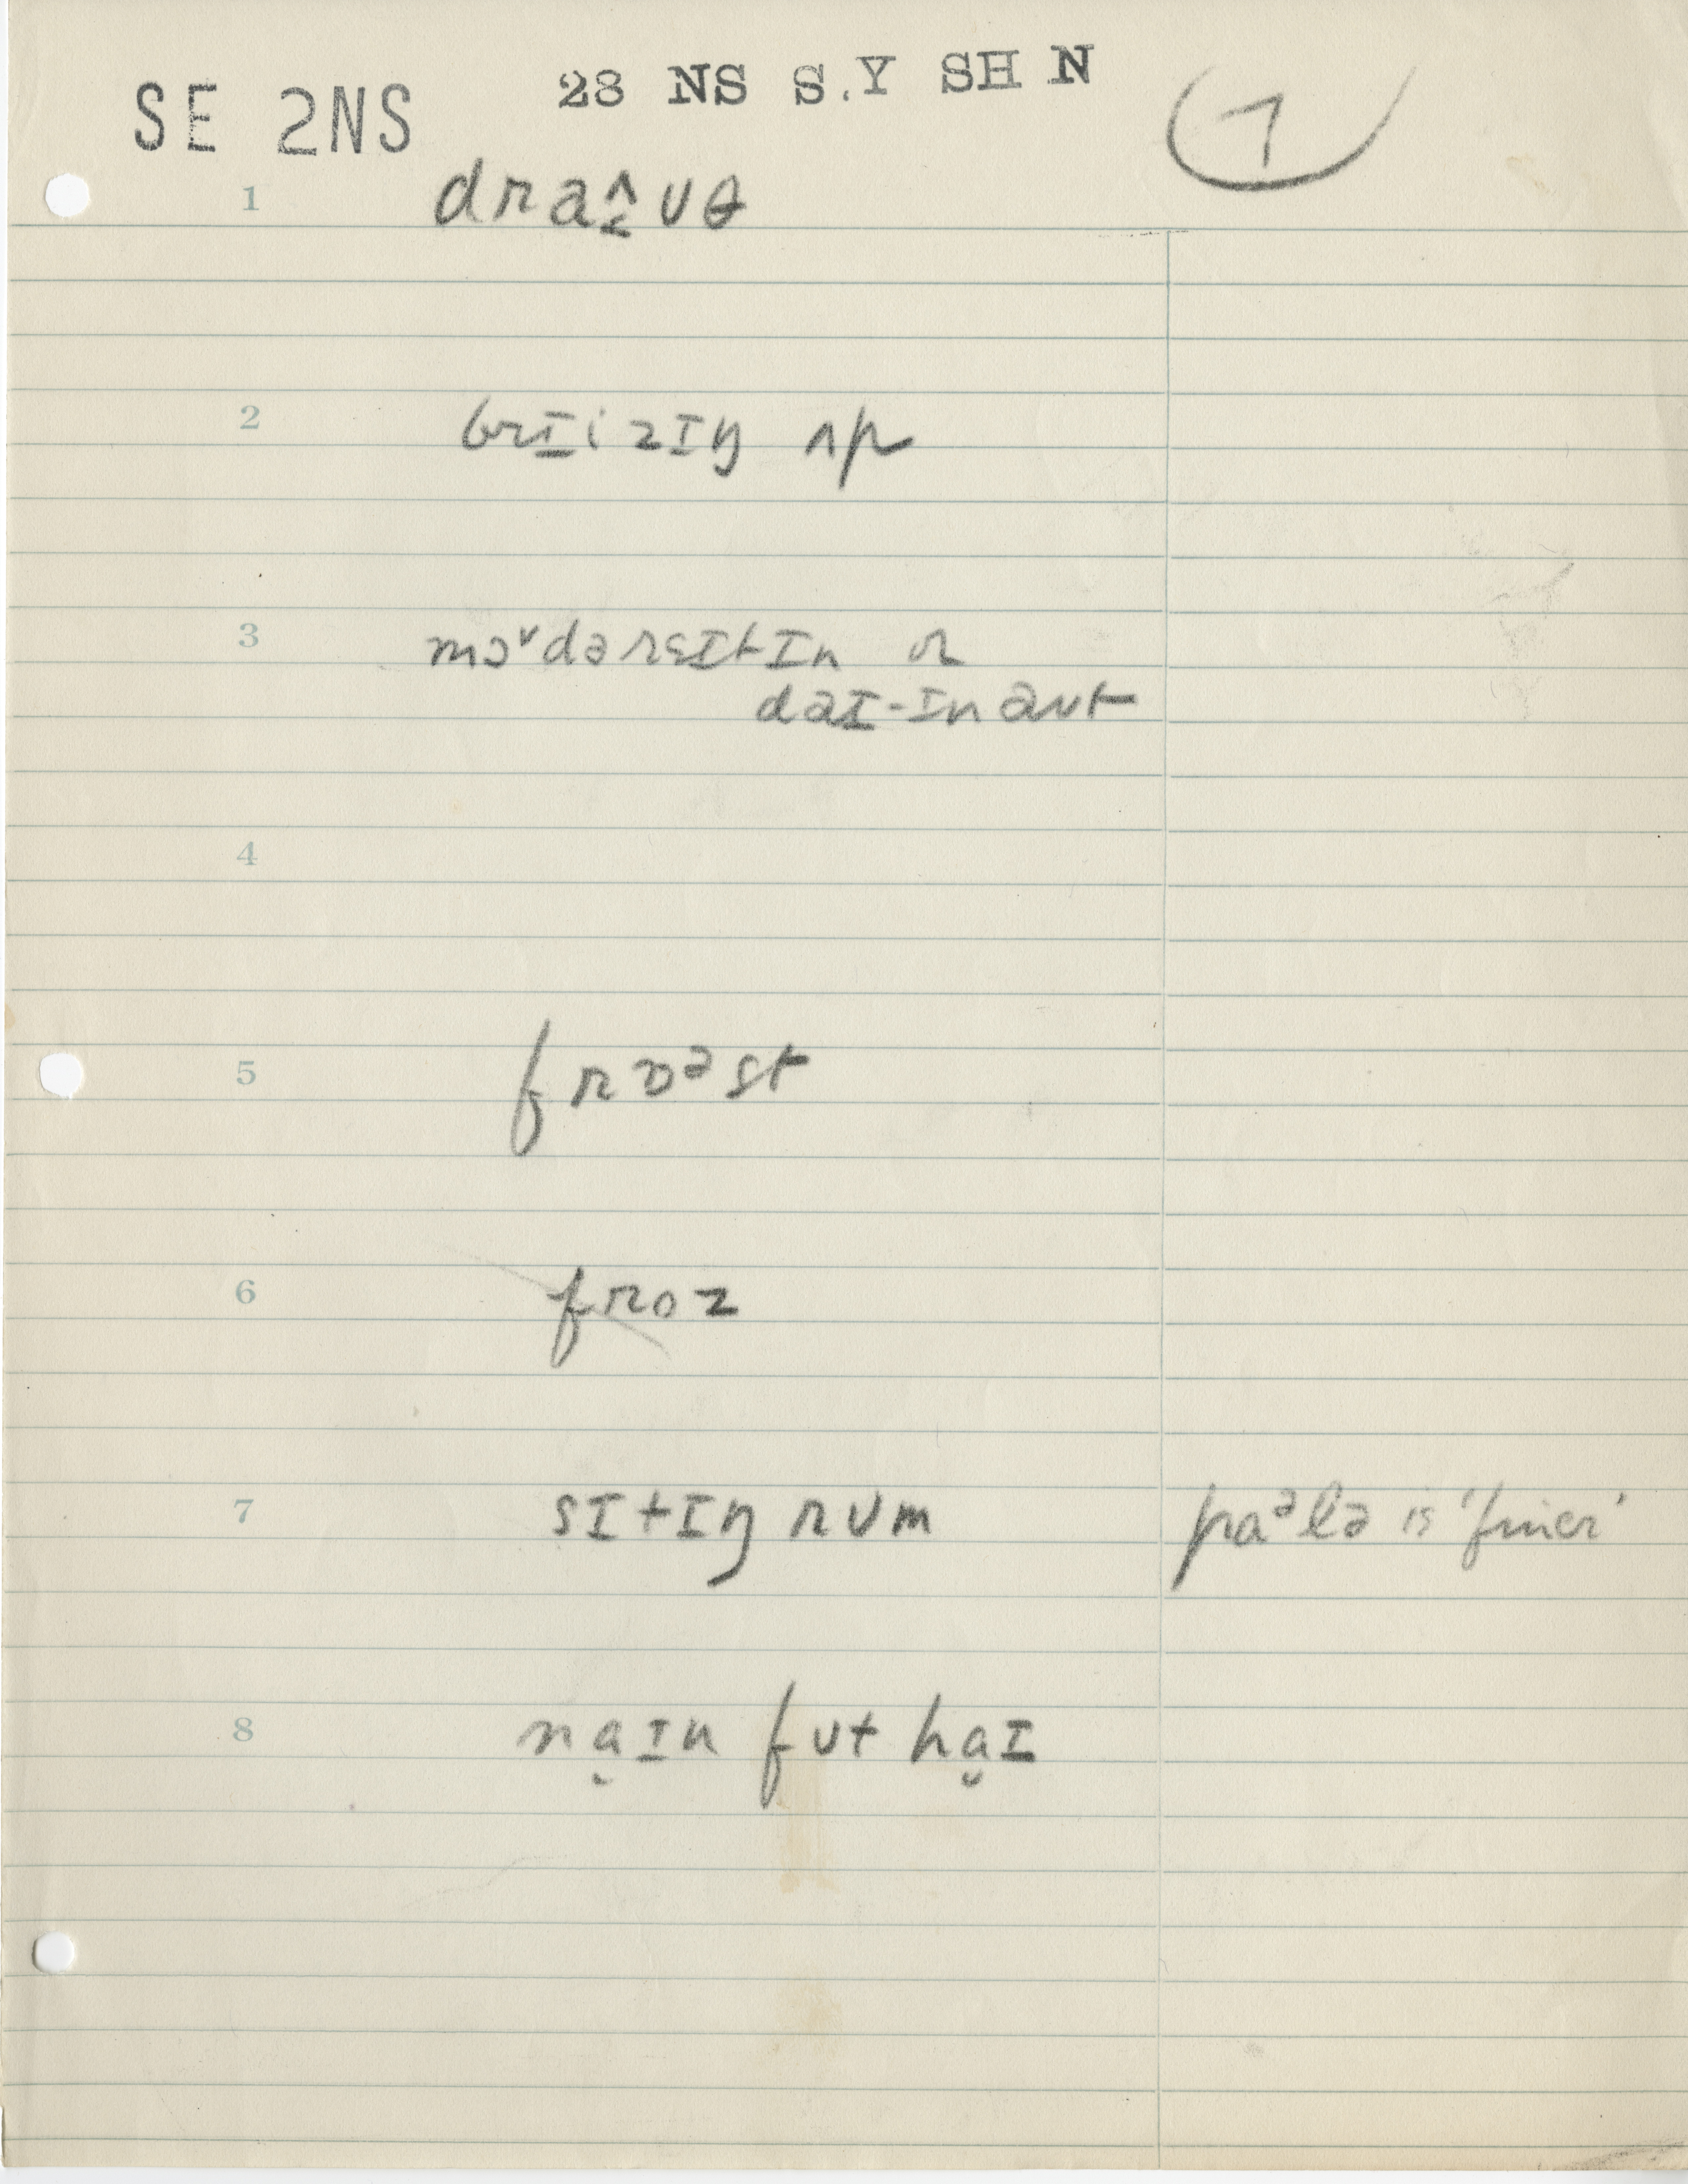 28 NS S.Y SH N
SE 2NS
7
1 draɪ̭̂ʊθ
2 brɪ̱izɪŋ ʌp
3 mɔᶷdərɛɪtɪn or
daɪ-ɪn aʊt
4
5 frɒᵊst
6 froz
7 sɪtɪŋ rʊm
paᵊlə is 'finer'
8 na̮ɪn fʊt ha̮ɪ